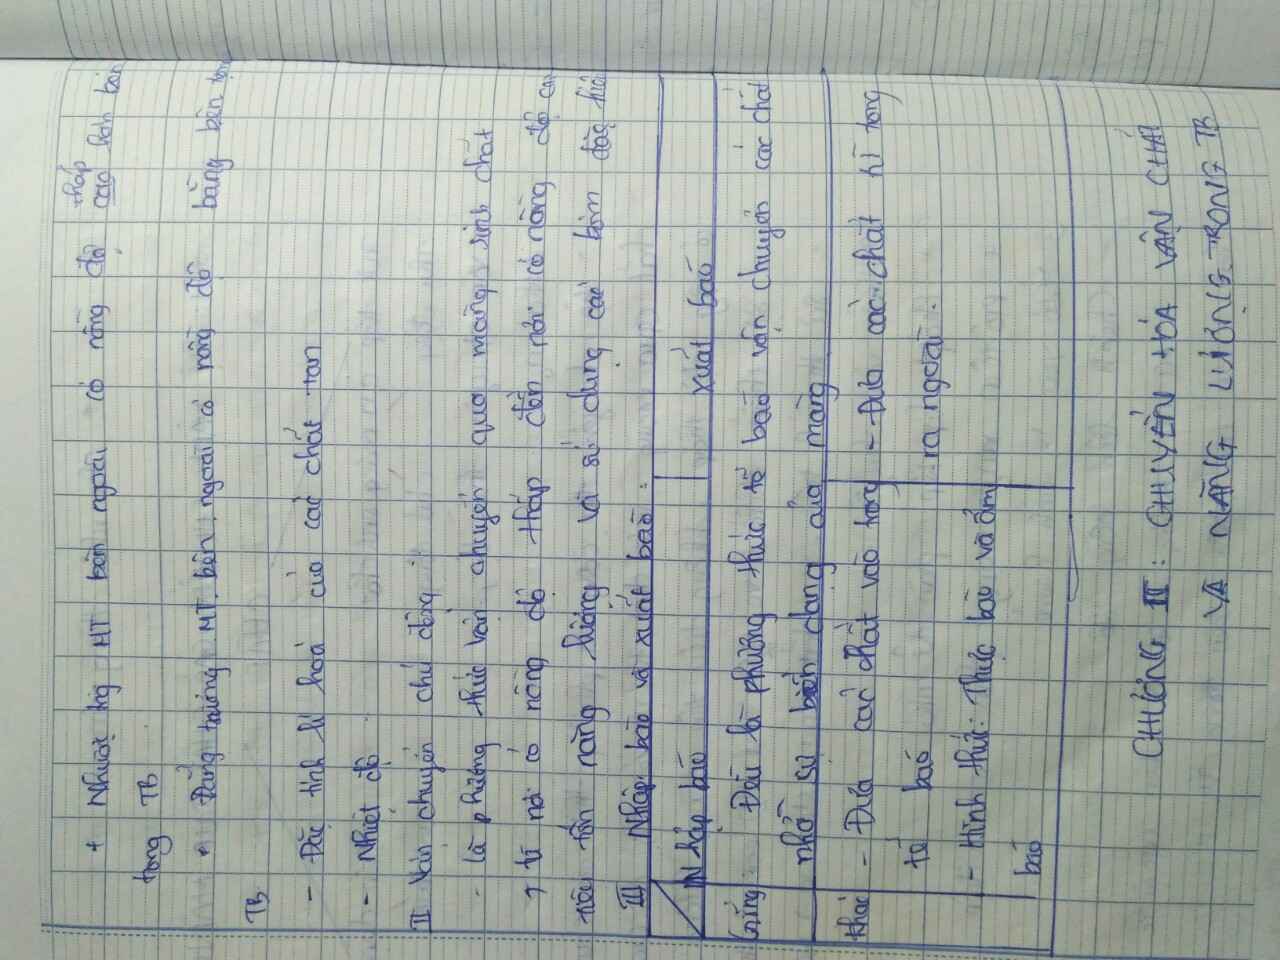 thấp
+ Nhược trg MT bên ngoài có nồng độ cao hơn bên
trong TB
+ Đẳng trương MT bên ngoài có nồng độ bằng bên trong
TB
- Đặc tính lí hoá của các chất tan
- Nhiệt độ
II Vận chuyển chủ động:
- là phương thức vận chuyển qua màng sinh chất
từ nơi có nồng độ thấp đến nơi có nồng độ cao
tiêu tốn năng lượng và sử dụng các bơm đặc hiệu
III Nhập bào và xuất bào:
Nhập bào xuất bào
Giống: Đều là phương thức tế bào vận chuyển các chất
nhờ sự biến dạng của màng
khác - Đưa các chất vào trong - Đưa các chất từ trong
tế bào ra ngoài.
- Hình thức: Thực bào và ẩm
bào
CHƯƠNG III: CHUYỂN HÓA VẬN CHẤT
VÀ NĂNG LƯỢNG TRONG TB